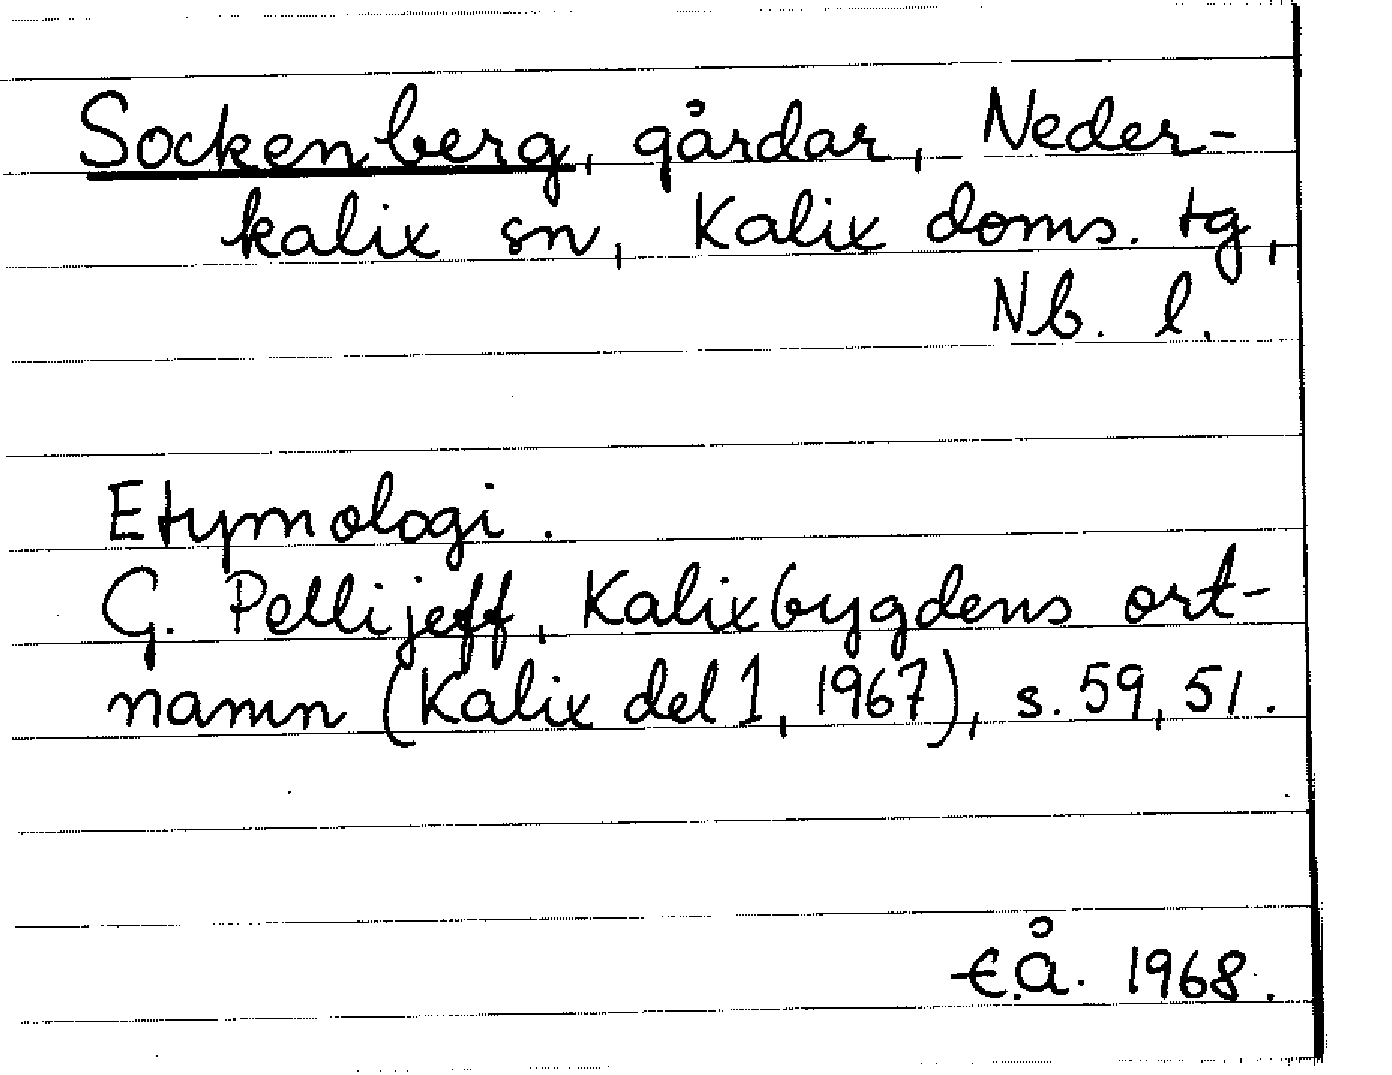 Sockenberg, gårdar, Neder-
kalix sn, Kalix doms. tg,
Nb. l.
Etymologi.
G. Pellijeff, Kalixbygdens ort-
namn (Kalix del 1, 1967), s. 59, 51.
E.Å. 1968.